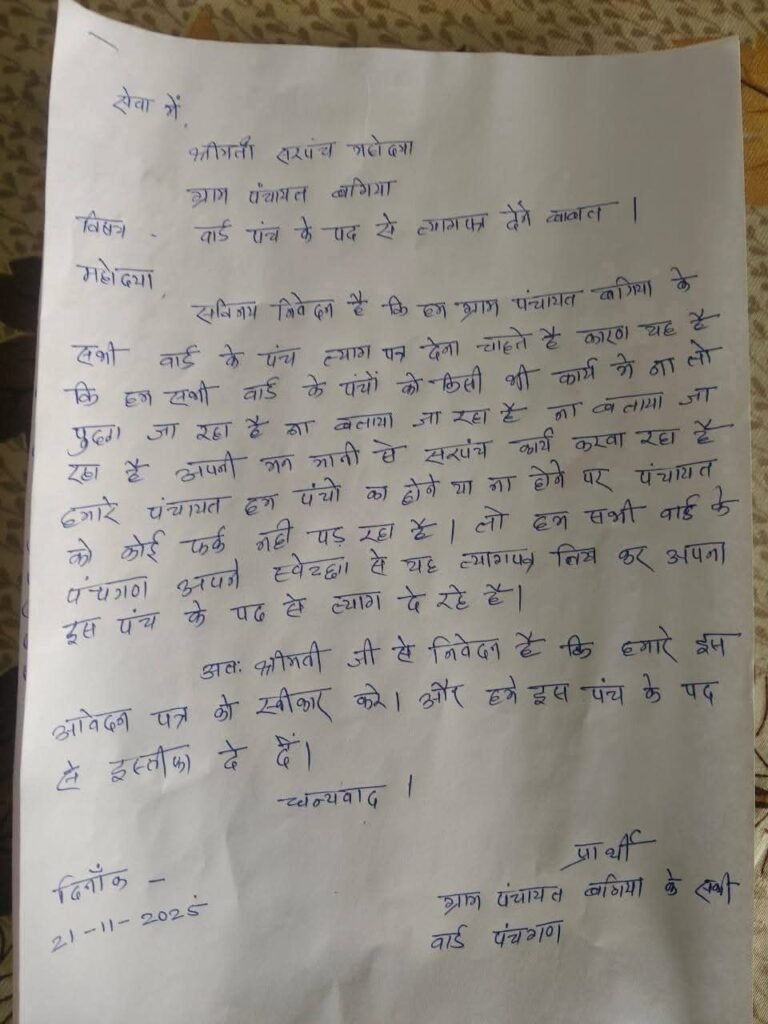 सेवा में,
श्रीमती सरपंच महोदया
ग्राम पंचायत बगिया
विषय - वार्ड पंच के पद से त्यागपत्र देने बाबत ।
महोदया
सविनय निवेदन है कि हम ग्राम पंचायत बगिया के
सभी वार्ड के पंच त्याग पत्र देना चाहते है कारण यह है
कि हम सभी वार्ड के पंचों को किसी भी कार्य मे ना तो
पुछा जा रहा है ना बताया जा रहा है ना बताया जा
रहा है अपनी मन मानी से सरपंच कार्य करवा रहा है
हमारे पंचायत हम पंचो का होने या ना होने पर पंचायत
को कोई फर्क नही पड़ रहा है । तो हम सभी वार्ड के
पंचगण अपने स्वेच्छा से यह त्यागपत्र लिख कर अपना
इस पंच के पद से त्याग दे रहे है।
अतः श्रीमती जी से निवेदन है कि हमारे इस
आवेदन पत्र को स्वीकार करे। और हमे इस पंच के पद
से इस्तीफा दे दें।
धन्यवाद ।
प्रार्थी
ग्राम पंचायत बगिया के सभी
वार्ड पंचगण
दिनाँक -
21-11-2025